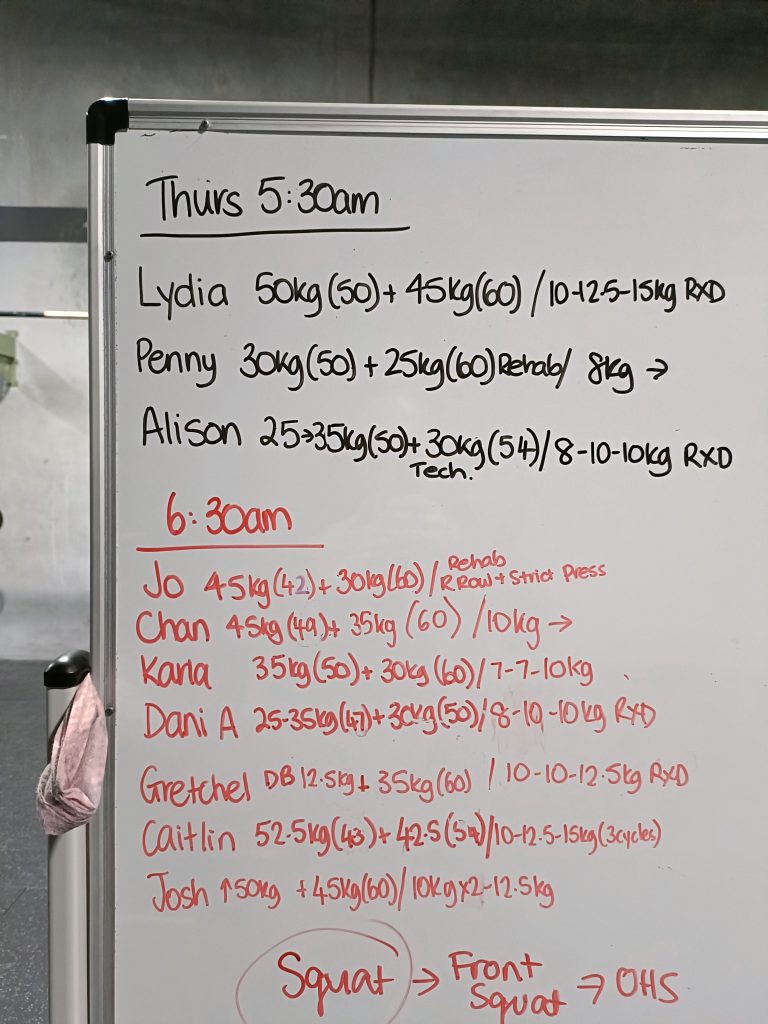 Thurs 5:30am
Lydia 50kg (50) + 45kg (60) / 10-12.5-15kg RXD
Penny 30kg (50) + 25kg (60) Rehab / 8kg →
Alison 25→35kg (50) + 30kg (54) / 8-10-10kg RXD
Tech.
6:30am
Jo 45kg (42) + 30kg (60) / Rehab
R Row + Strict Press
Chan 45kg (49) + 35kg (60) / 10kg →
Karla 35kg (50) + 30kg (60) / 7-7-10kg
Dani A 25-35kg (47) + 30kg (50) / 8-10-10kg RXD
Gretchel DB 12.5kg + 35kg (60) / 10-10-12.5kg RXD
Caitlin 52.5kg (43) + 42.5 (59) / 10-12.5-15kg (3cycles)
Josh ↑50kg + 45kg (60) / 10kg x2-12.5kg
Squat → Front Squat → OHS